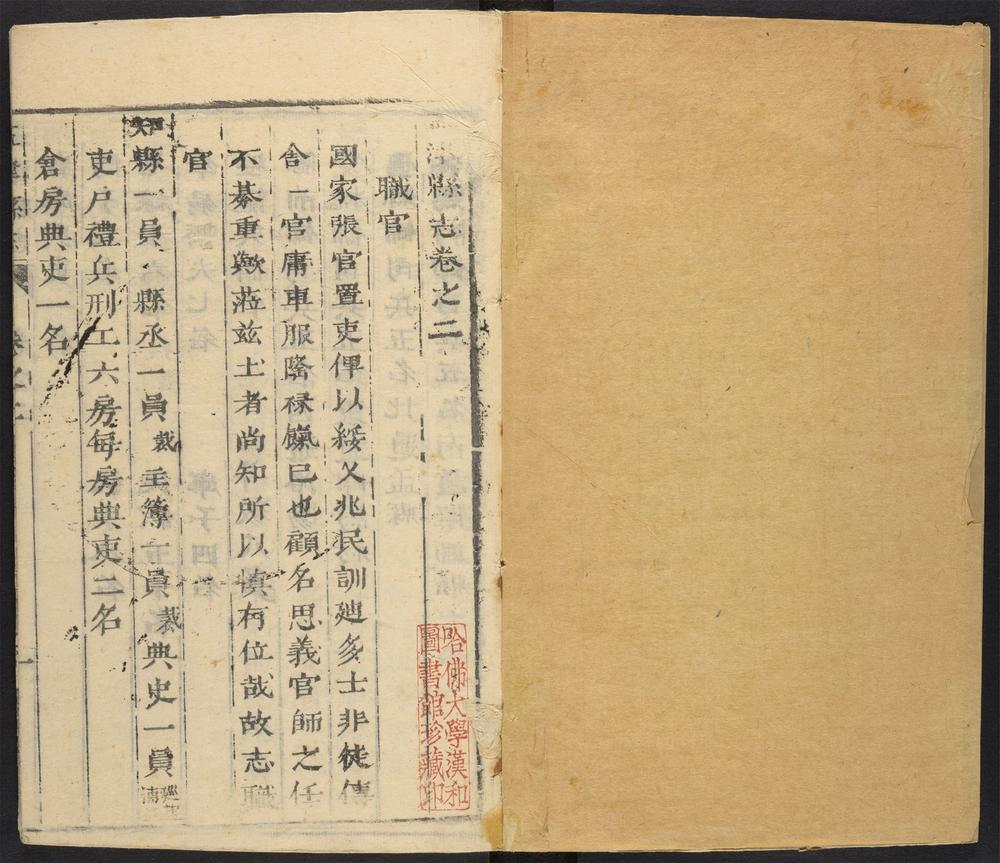 縣志卷之二
職官
國家張官置吏俾以綏乂兆民訓廸多士非徒傳
舍一官庸車服隆祿餼巳也顧名思義官師之任
不綦重歟蒞兹土者尚知所以慎冇位哉故志職
官
知縣一員縣丞一員裁主簿一員裁典史一員
吏戶禮兵刑工六房每房典吏二名
倉房典吏一名
縣志 卷之二 一
哈佛大學漢和
圖書館珍藏印